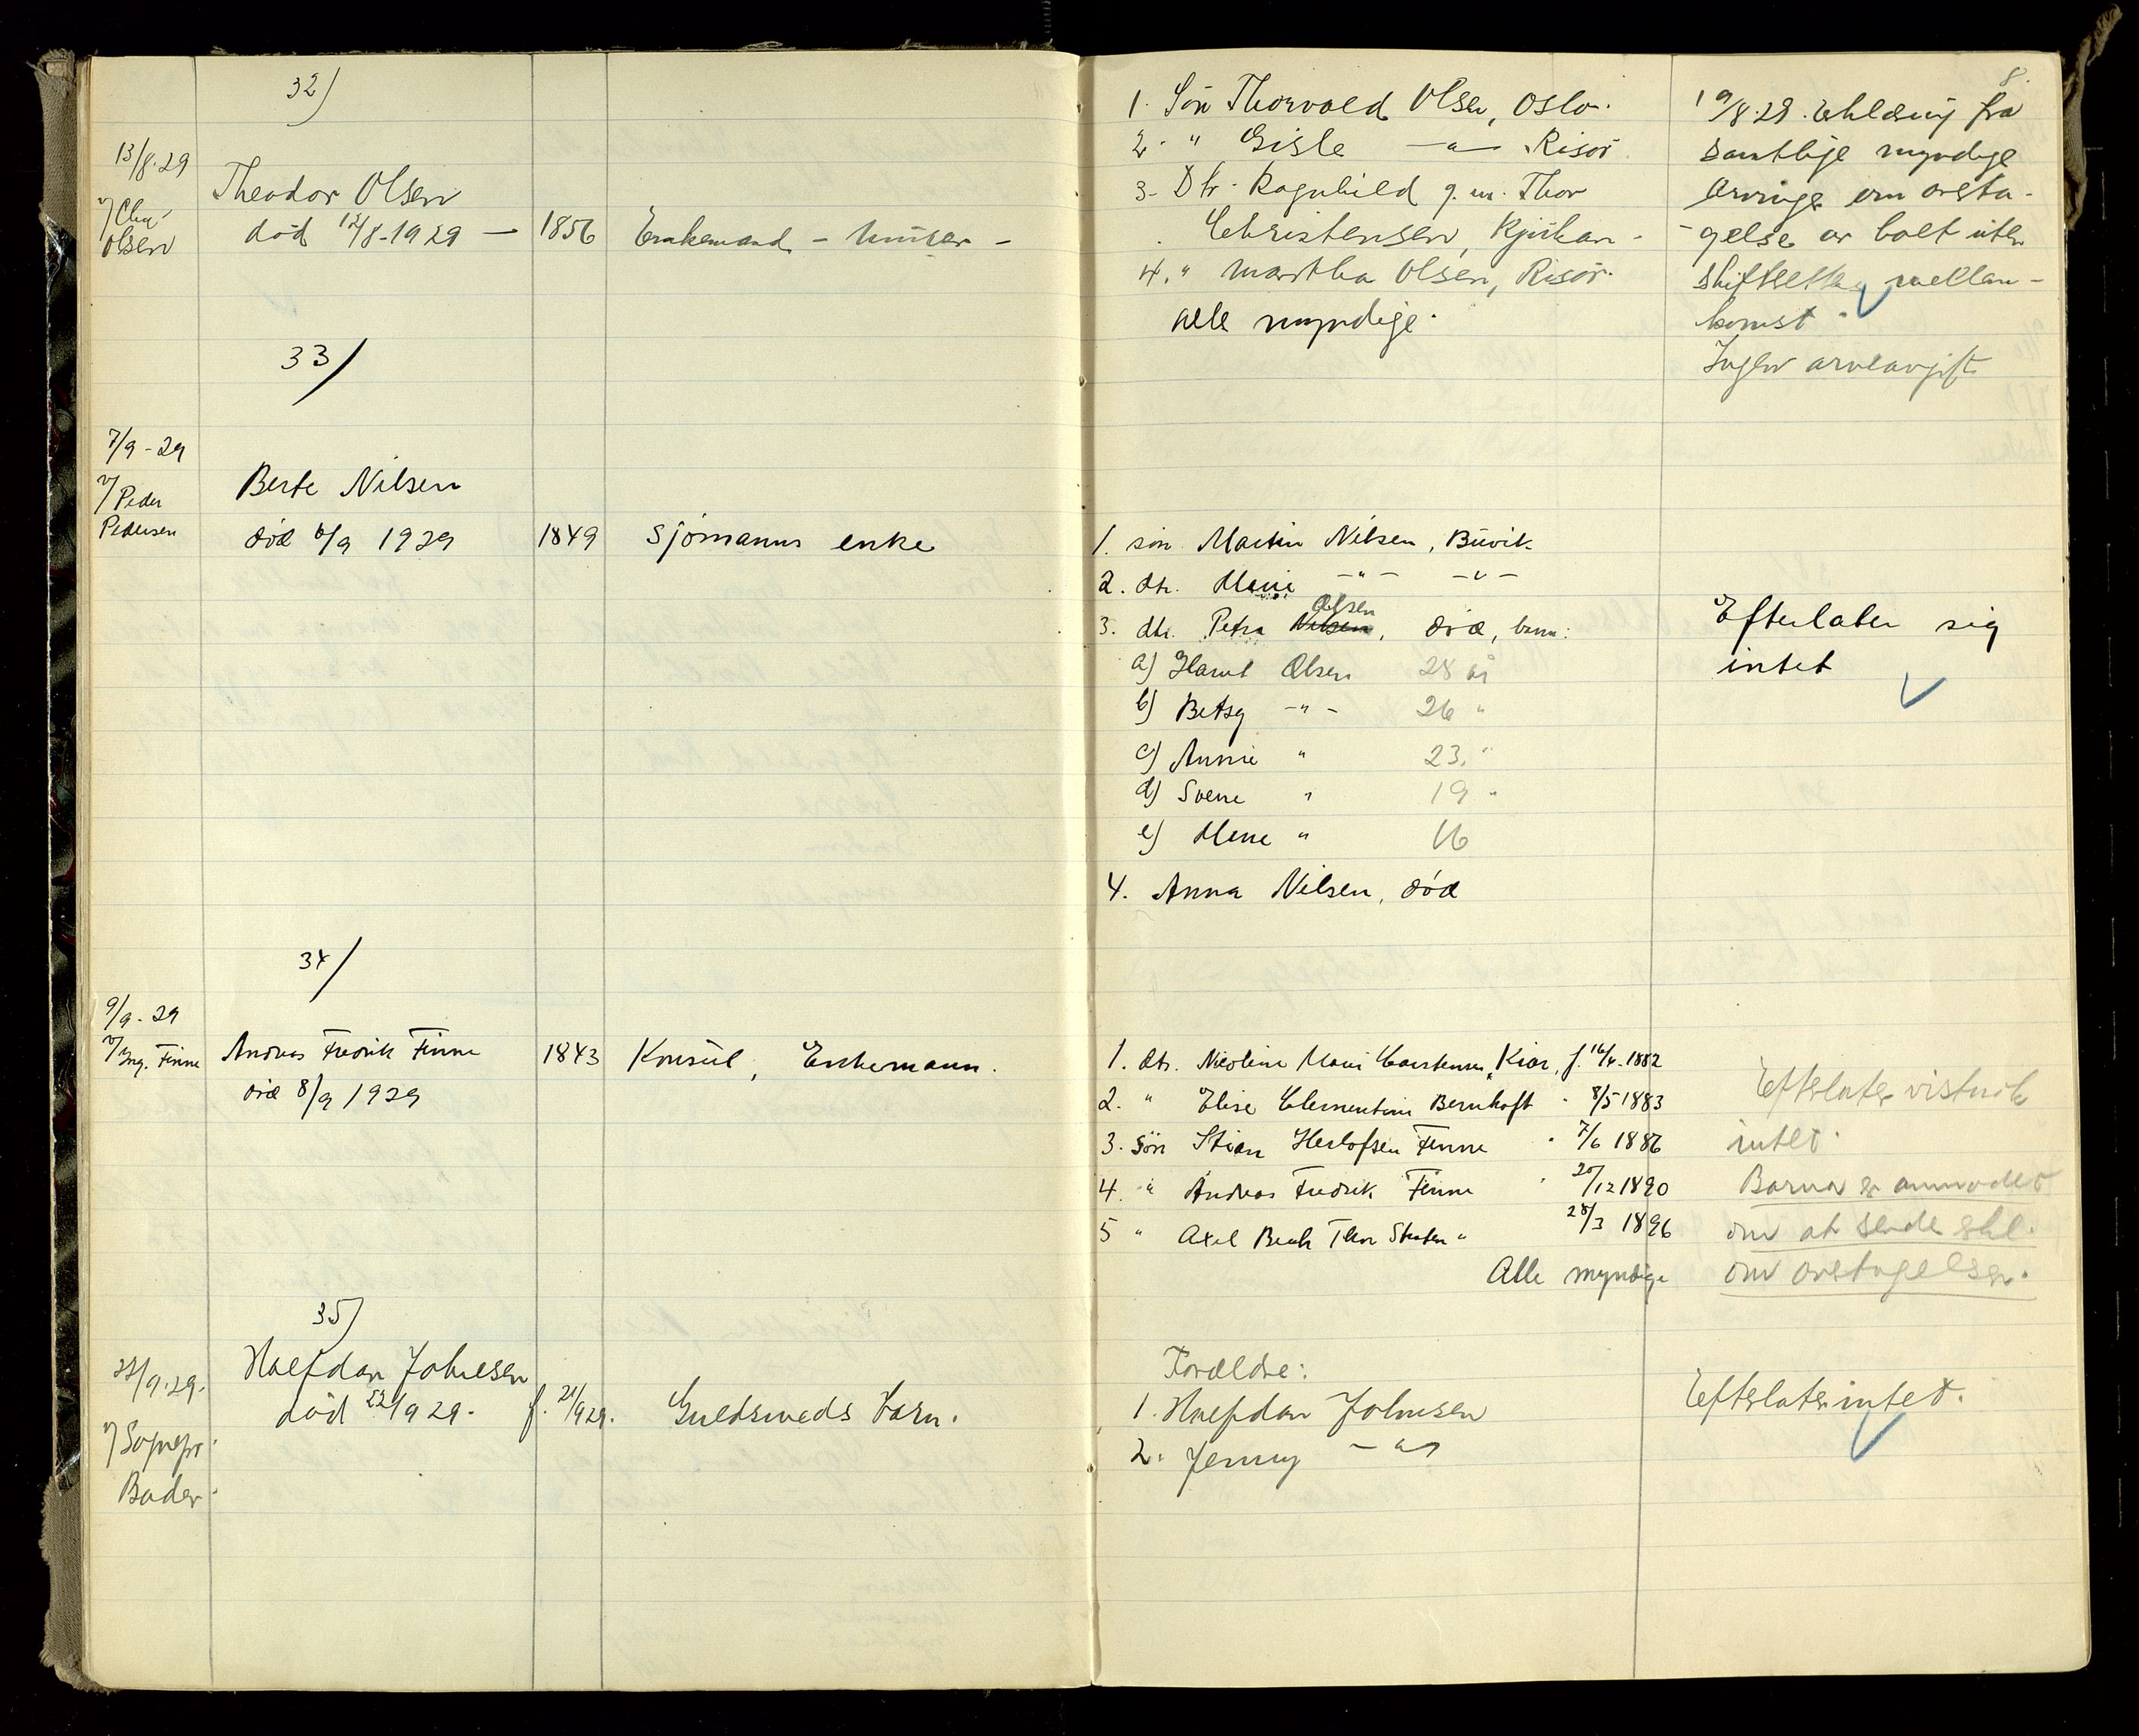 8.
32)
13/8.29
v/ Chr.
Olsen
Theodor Olsen
död 12/8-1929 —
1856
Enkemand - murer -
1. Sön Thorvald Olsen, Oslo.
2. " Gisle —"— Risör
3. Dtr. Ragnhild g. m. Thor
Christensen, Rjukan -
4. " Martha Olsen, Risör.
Alle myndige.
19/8.29. Erklæring fra
samtlige myndige
arvinger om overta-
gelse av boet uten
skifterettens mellem-
komst.
Ingen arveavgift
33/
7/9-29
v/ Peder
Pedersen
Berte Nilsen
död 6/9 1929
1849
Sjömanns enke
1. sön Martin Nilsen, Buvik
2. dtr. Marie —"— —"—
Olsen
3. dtr. Petra Nilsen, död, barn:
a) Harald Olsen 28 år
b) Betsy —"— 26 "
c) Annie " 23. "
d) Sverre " 19 "
e) " 16
4. Anna Nilsen, död
Efterlater sig
intet
34/
9/9-29
v/ Ing. Finne
Andreas Fredrik Finne
död 8/9 1929
1843
Konsul, Enkemann.
1. dtr. Nicoline Marie Carstensen Kiær, f. 16/4-1882
2. " Elise Clementine Bernhoft " 8/5 1883
3. Sön Stian Herlofsen Finne " 7/6 1886
4. " Andreas Fredrik Finne " 20/12 1890
5 " Axel Beck Thor " 28/3 1896
Alle myndige
Efterlater vistnok
intet.
Barna er anmodet
om at sende erkl.
om overtagelsen.
35)
23/9.29.
v/ Sognepr.
Bader.
Halfdan Johnsen
död 22/9 29.
f. 21/9 29.
Guldsmeds barn.
Foreldre:
1. Halfdan Johnsen
2. Jenny —"—
Efterlater intet.